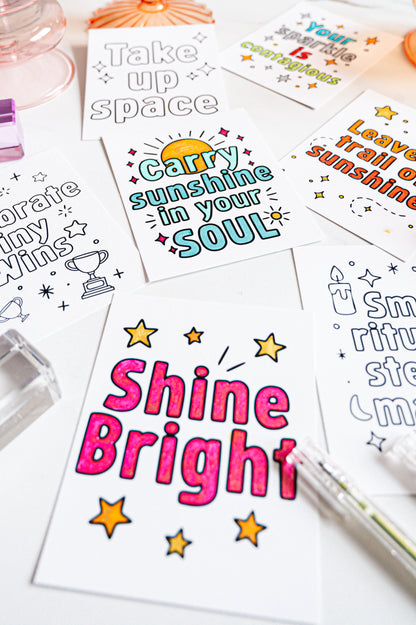 Take
up
space
Your
sparkle
is
contagious
Carry
sunshine
in your
SOUL
Leave
trail of
sunshine
tiny
wins
Shine
Bright